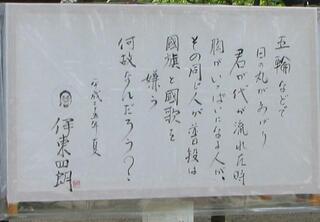 五輪などで
日の丸があがり
君が代が流れた時
胸がいっぱいになる人が、
その同じ人が普段は
國旗と國歌を
嫌う
何故なんだろう?
平成二十五年 夏
伊東四朗